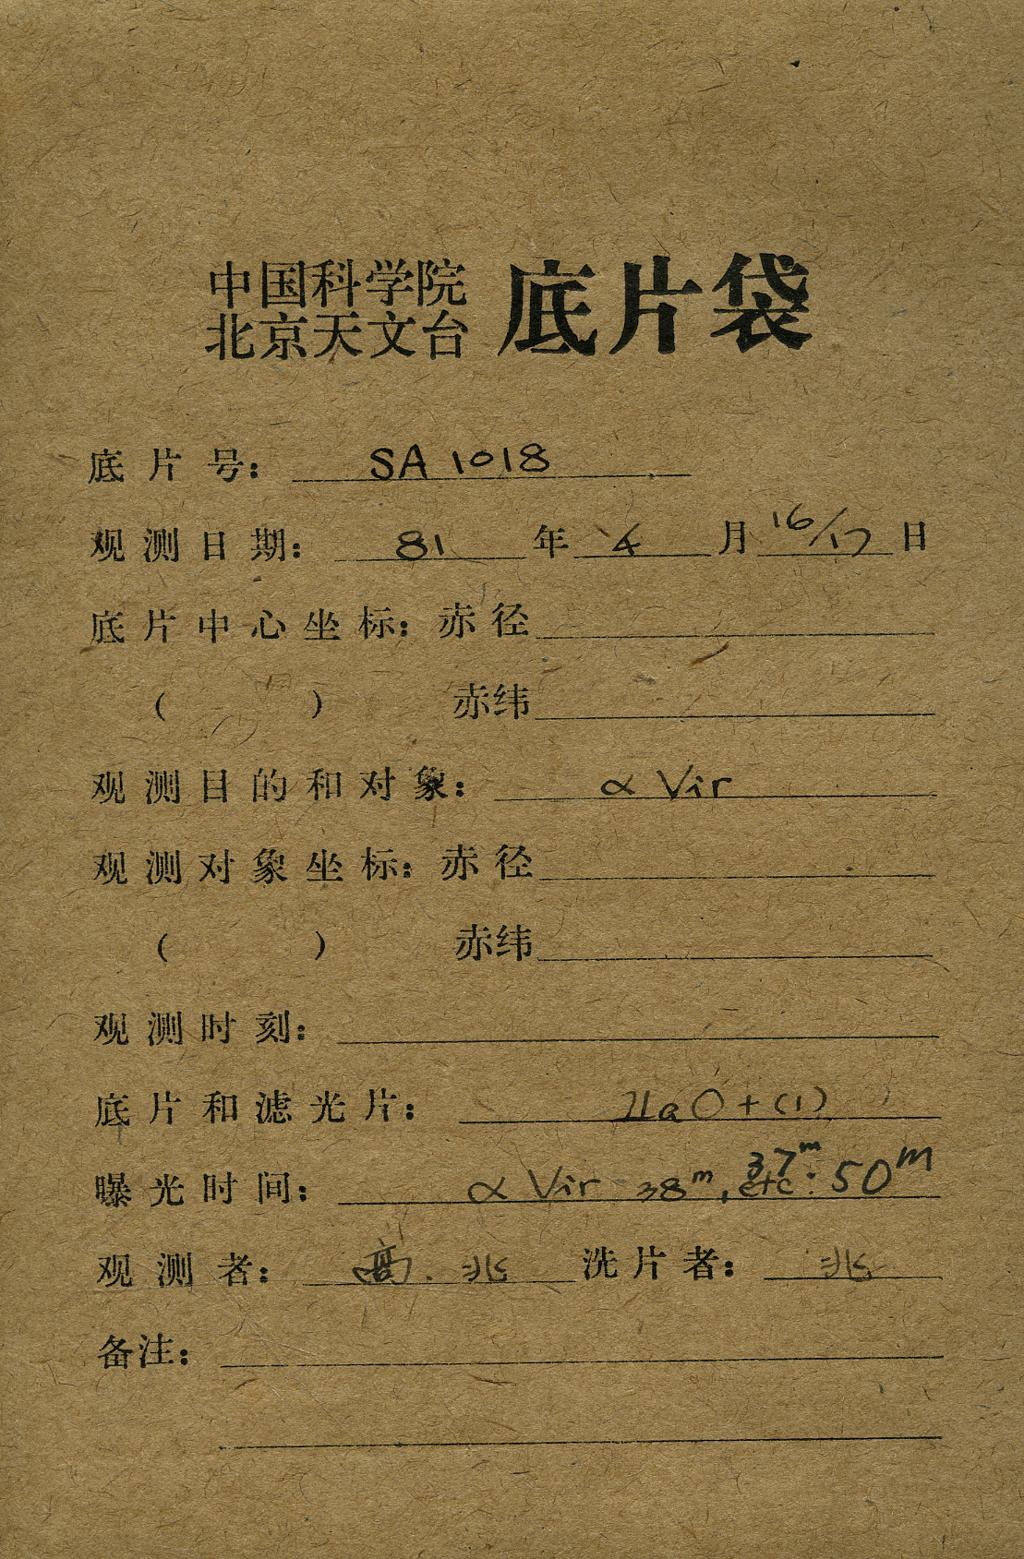 中国科学院
北京天文台 底片袋
底片号: SA 1018
观测日期: 81 年 4 月 16/17 日
底片中心坐标: 赤径
( ) 赤纬
观测目的和对象: α Vir
观测对象坐标: 赤径
( ) 赤纬
观测时刻:
底片和滤光片: IIaO+(1)
曝光时间: α Vir 38m, 37m etc: 50m
观测者: 高. 兆 洗片者: 兆
备注: